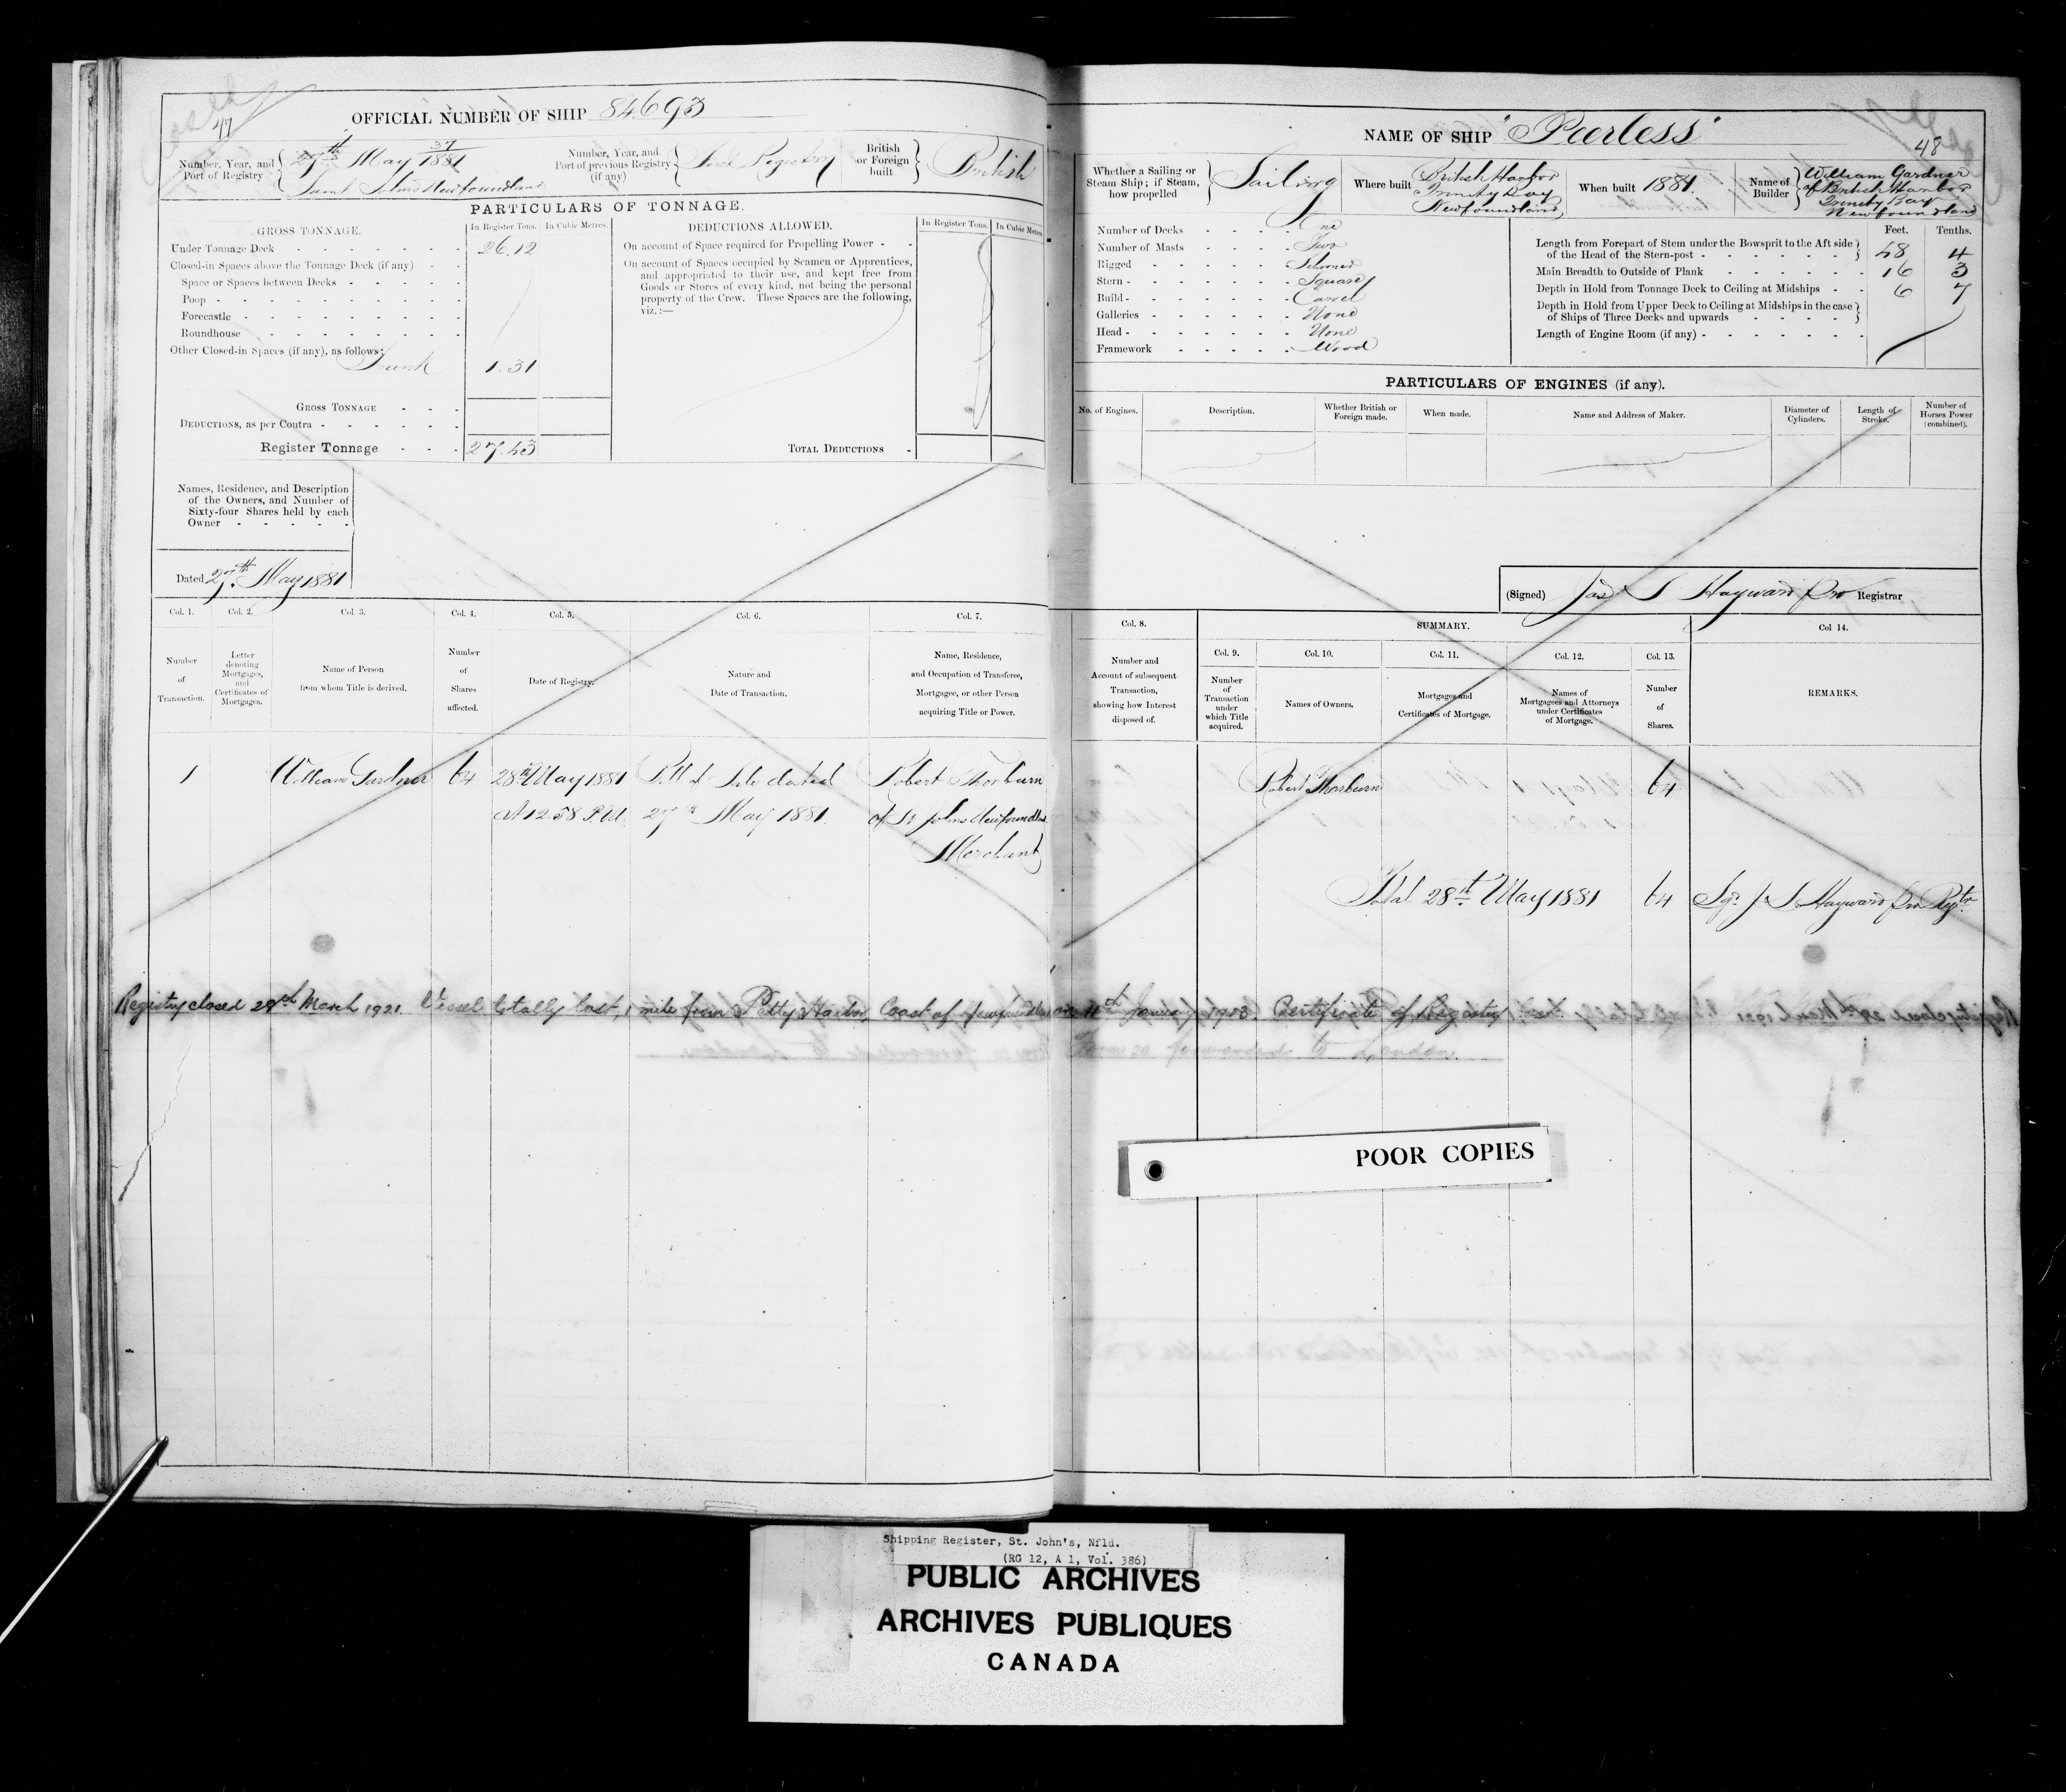 47
OFFICIAL NUMBER OF SHIP 84693
Number, Year, and Port of Registry
37
27th May 1881
Saint Johns Newfoundland
Number, Year, and Port of previous Registry (if any)
First Registry
British or Foreign built
British
PARTICULARS OF TONNAGE.
GROSS TONNAGE.
In Register Tons.
In Cubic Metres.
Under Tonnage Deck 26.12
Closed-in Spaces above the Tonnage Deck (if any)
Space or Spaces between Decks
Poop
Forecastle
Roundhouse
Other Closed-in Spaces (if any), as follows:
Trunk 1.31
GROSS TONNAGE
DEDUCTIONS, as per Contra
Register Tonnage 27.43
DEDUCTIONS ALLOWED.
In Register Tons.
In Cubic Metres.
On account of Space required for Propelling Power
On account of Spaces occupied by Seamen or Apprentices,
and appropriated to their use, and kept free from
Goods or Stores of every kind, not being the personal
property of the Crew. These Spaces are the following,
viz.:—
TOTAL DEDUCTIONS
Names, Residence, and Description
of the Owners, and Number of
Sixty-four Shares held by each
Owner
Dated 27th May 1881
Col. 1.
Number of Transaction.
Col. 2.
Letter denoting Mortgages, and Certificates of Mortgages.
Col. 3.
Name of Person from whom Title is derived.
Col. 4.
Number of Shares affected.
Col. 5.
Date of Registry.
Col. 6.
Nature and Date of Transaction.
Col. 7.
Name, Residence, and Occupation of Transferee, Mortgagee, or other Person acquiring Title or Power.
1 William Gardner 64 28th May 1881 Bill of Sale dated Robert Thorburn
At 12.58 P.M. 27th May 1881 of St Johns Newfoundland
Merchant
NAME OF SHIP "Peerless"
48
Whether a Sailing or Steam Ship; if Steam, how propelled
Sailing
Where built
British Harbor
Trinity Bay
Newfoundland
When built 1881.
Name of Builder
William Gardner
of British Harbor
Trinity Bay
Newfoundland
Number of Decks One
Number of Masts Two
Rigged Schooner
Stern Square
Build Carvel
Galleries None
Head None
Framework Wood
Feet. Tenths.
Length from Forepart of Stem under the Bowsprit to the Aft side
of the Head of the Stern-post 48 4
Main Breadth to Outside of Plank 16 3
Depth in Hold from Tonnage Deck to Ceiling at Midships 6 7
Depth in Hold from Upper Deck to Ceiling at Midships in the case
of Ships of Three Decks and upwards
Length of Engine Room (if any)
PARTICULARS OF ENGINES (if any).
No. of Engines.
Description.
Whether British or Foreign made.
When made.
Name and Address of Maker.
Diameter of Cylinders.
Length of Stroke.
Number of Horses Power (combined).
(Signed) Jas S Hayward pro Registrar
Col. 8.
Number and Account of subsequent Transaction, showing how Interest disposed of.
SUMMARY.
Col. 9.
Number of Transaction under which Title acquired.
Col. 10.
Names of Owners.
Col. 11.
Mortgages and Certificates of Mortgage.
Col. 12.
Names of Mortgagees and Attorneys under Certificates of Mortgage.
Col. 13.
Number of Shares.
Col 14.
REMARKS.
Robert Thorburn 64
Total 28th May 1881 64 Sgd J S Hayward pro Regtr
Registry closed 28th March 1921. Vessel totally lost, 1 mile from Petty Harbor, Coast of Newfoundland on 11th January 1913. Certificate of Registry lost.
Form 20 forwarded to London.
POOR COPIES
Shipping Register, St. John's, Nfld.
(RG 12, A 1, Vol. 386)
PUBLIC ARCHIVES
ARCHIVES PUBLIQUES
CANADA